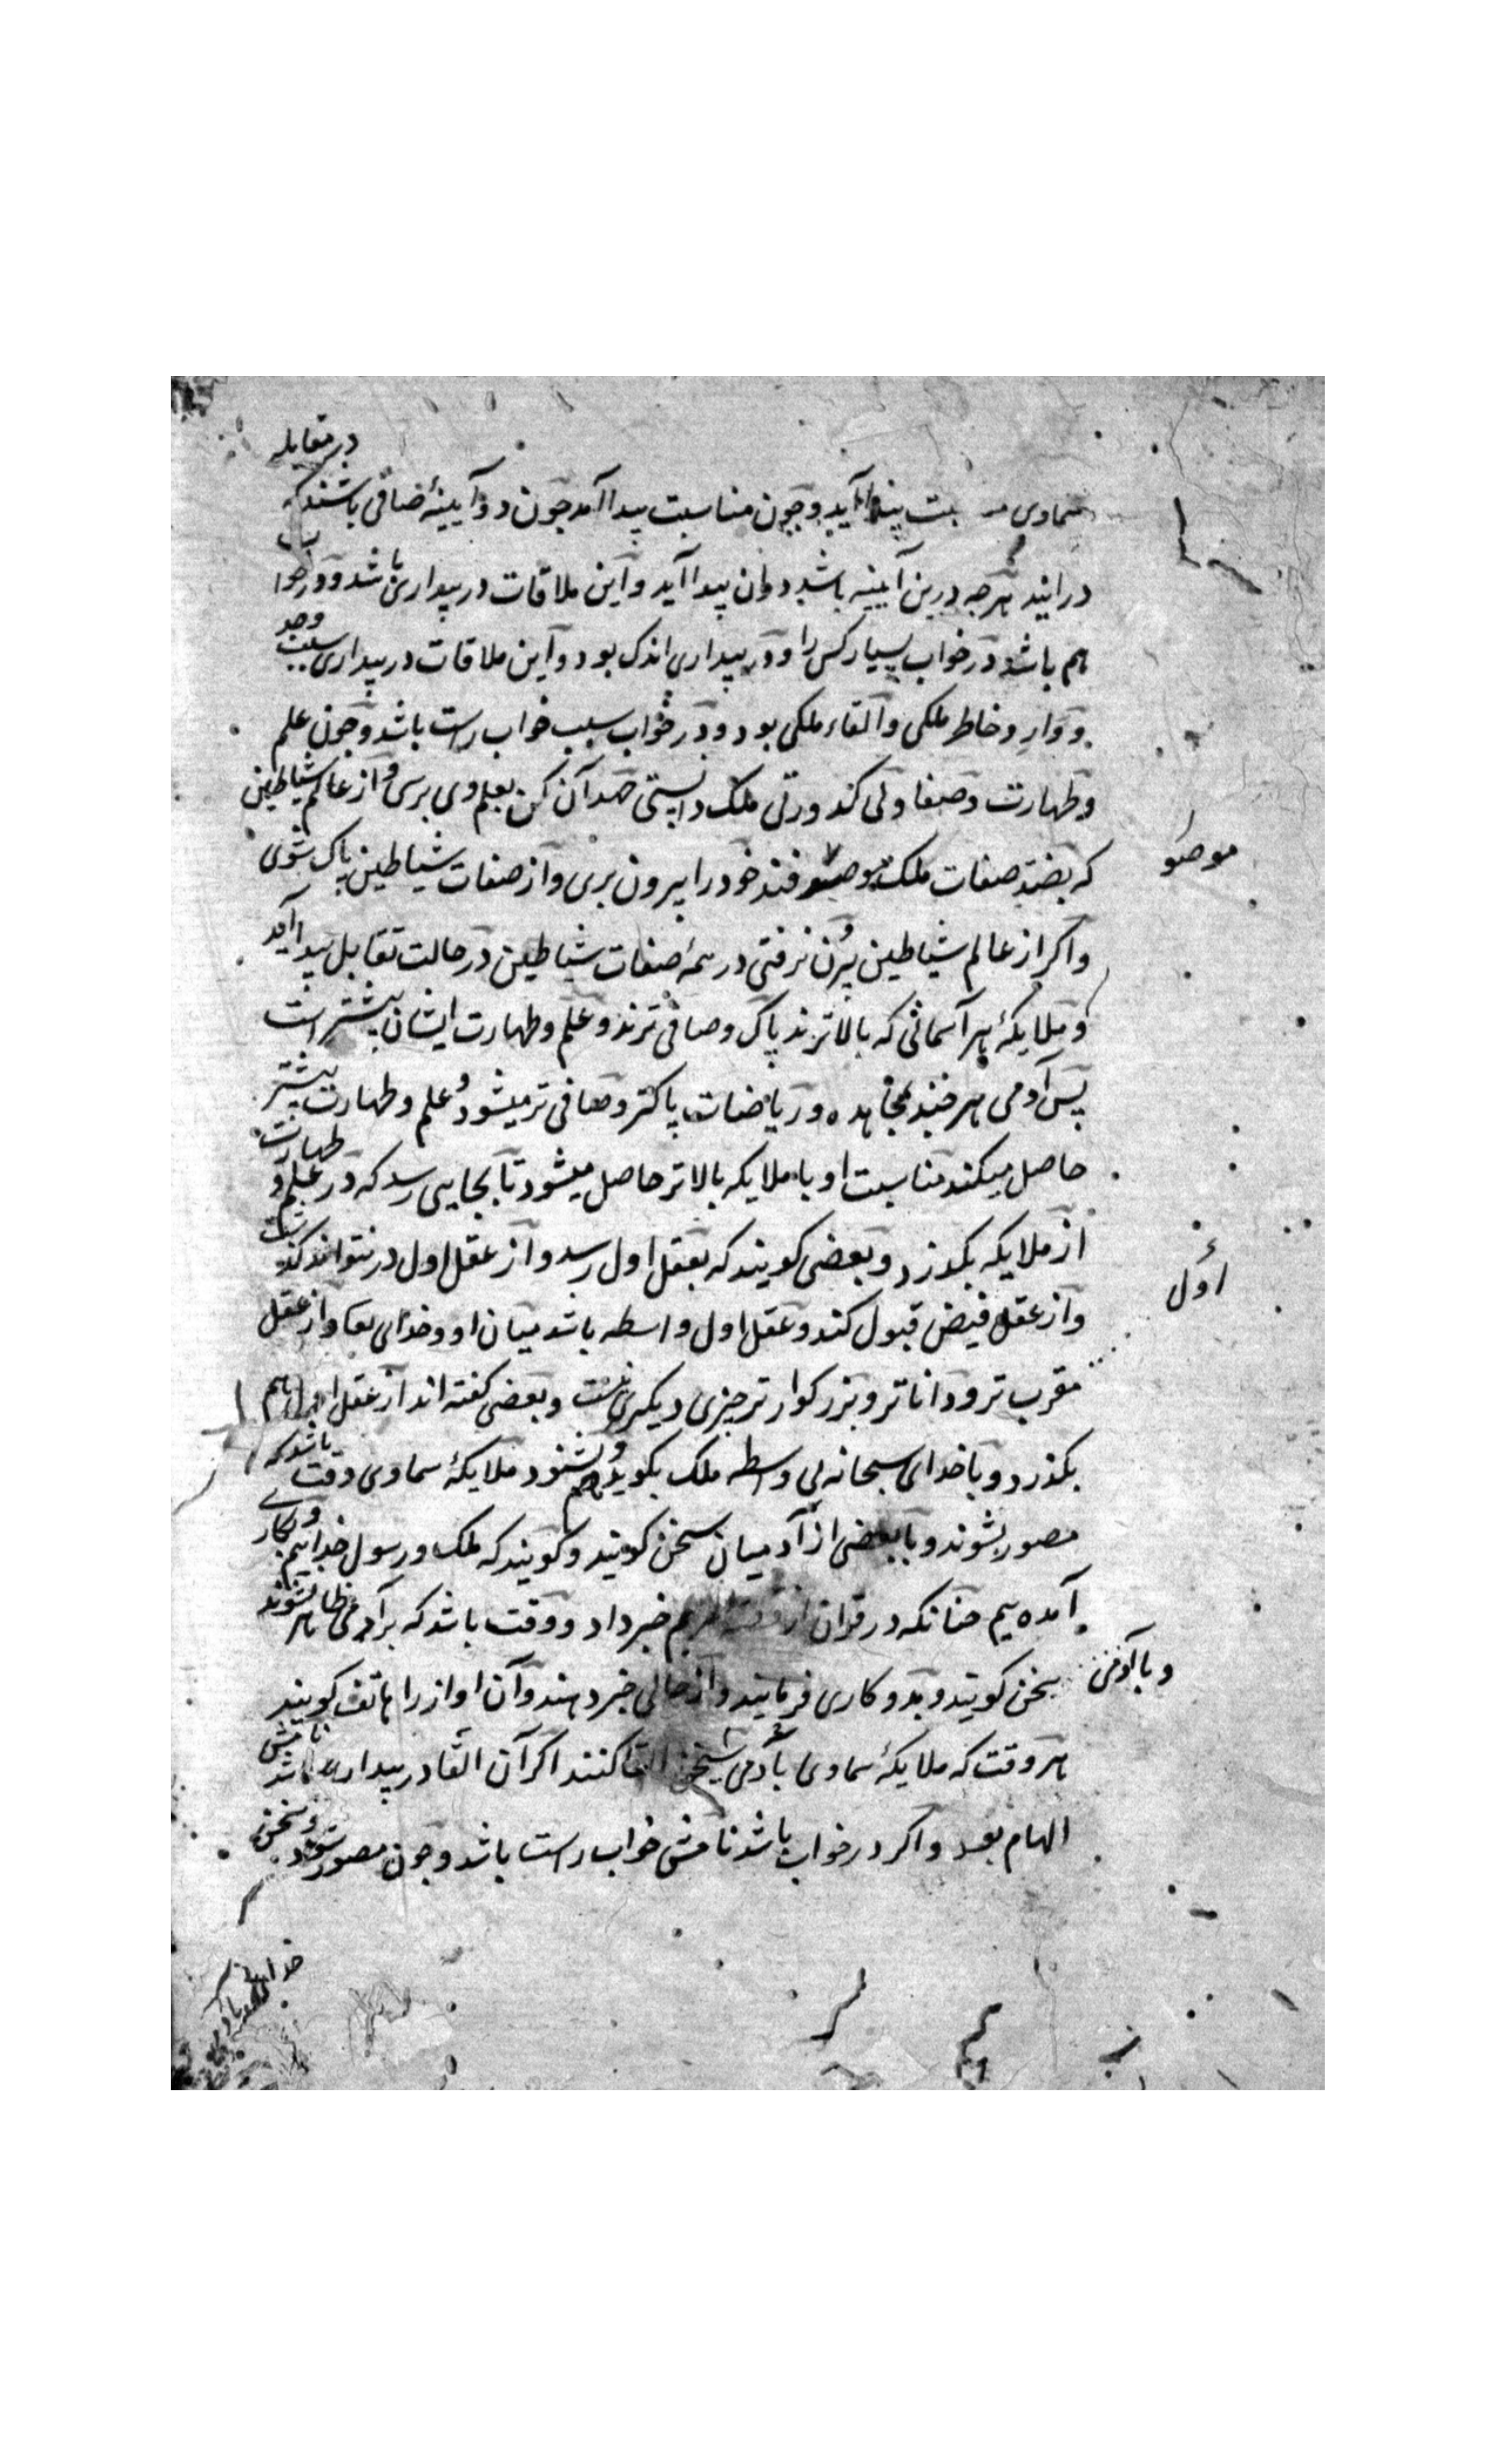 سماوی مناسبت پیدا آید و چون مناسبت پیدا آمد چون دو آیینهٔ صافی باشند که در مقابله
درآیند هرچه درین آیینه باشد دران پیدا آید و این ملاقات در بیداری باشد و در خواب
هم باشد در خواب بسیار کس را و در بیداری اندک بود و این ملاقات در بیداری سبب وجد
و وارد و خاطر ملکی و القاء ملکی بود و در خواب سبب خواب راست باشد و چون علم
و طهارت و صفا و بی کدورتی ملک دانستی جهد آن کن بعلم وی برسی و از عالم شیاطین
که بضد صفات ملک موصوفند خود را بیرون بری و از صفات شیاطین پاک شوی
موصو
و اکر از عالم شیاطین بیرون نرفتی در همه صفات شیاطین در حالت تقابل پیدا آید
و ملایکهٔ هر آسمانی که بالاترند پاک و صافی ترند و علم و طهارت ایشان بیشتر است
پس آدمی هر چند بمجاهده و ریاضات پاکتر و صافی تر میشود و علم و طهارت بیشتر
حاصل میکند مناسبت او با ملایکه بالاتر حاصل میشود تا بجایی رسد که در علم و طهارت
از ملایکه بکذرد و بعضی کویند که بعقل اول رسد و از عقل اول در نتواند کذشت
اول
و از عقل فیض قبول کند و عقل اول واسطه باشد میان او و خدای تعا و از عقل
مقرب تر و داناتر و بزرکوارتر چیزی دیکری نیست و بعضی کفته اند از عقل اول هم
بکذرد و با خدای سبحانه بی واسطه ملک بکوید و بشنود هم ملایکهٔ سماوی وقت باشد که
مصور بشوند و با بعضی از آدمیان سخن کویند و کویند که ملک و رسول خداییم و بکاری
آمده یم چنانکه در قران از قصه مریم خبر داد و وقت باشد که بر آدمی ظاهر نشوند
و با آدمی سخن کویند و بدو کاری فرمایند و از حالی خبر دهند و آن اواز را هاتف کویند
هر وقت که ملایکهٔ سماوی با آدمی سخن القا کنند اکر آن القا در بیداری باشد نامش
الهام بود و اکر در خواب باشد نامش خواب راست باشد و چون مصور شوند و سخن